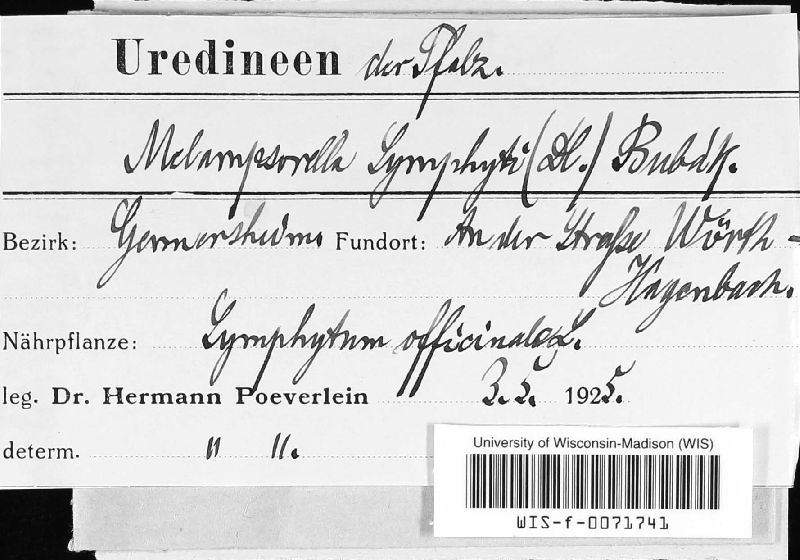 Uredineen der Pfalz.
Melampsorella Symphyti (DC.) Bubák.
Bezirk: Germersheim Fundort: An der Straße Wörth-
Hagenbach.
Nährpflanze: Symphytum officinale L.
leg. Dr. Hermann Poeverlein 3. 5. 1925.
determ. " ".
University of Wisconsin-Madison (WIS)
WIS-f-0071741